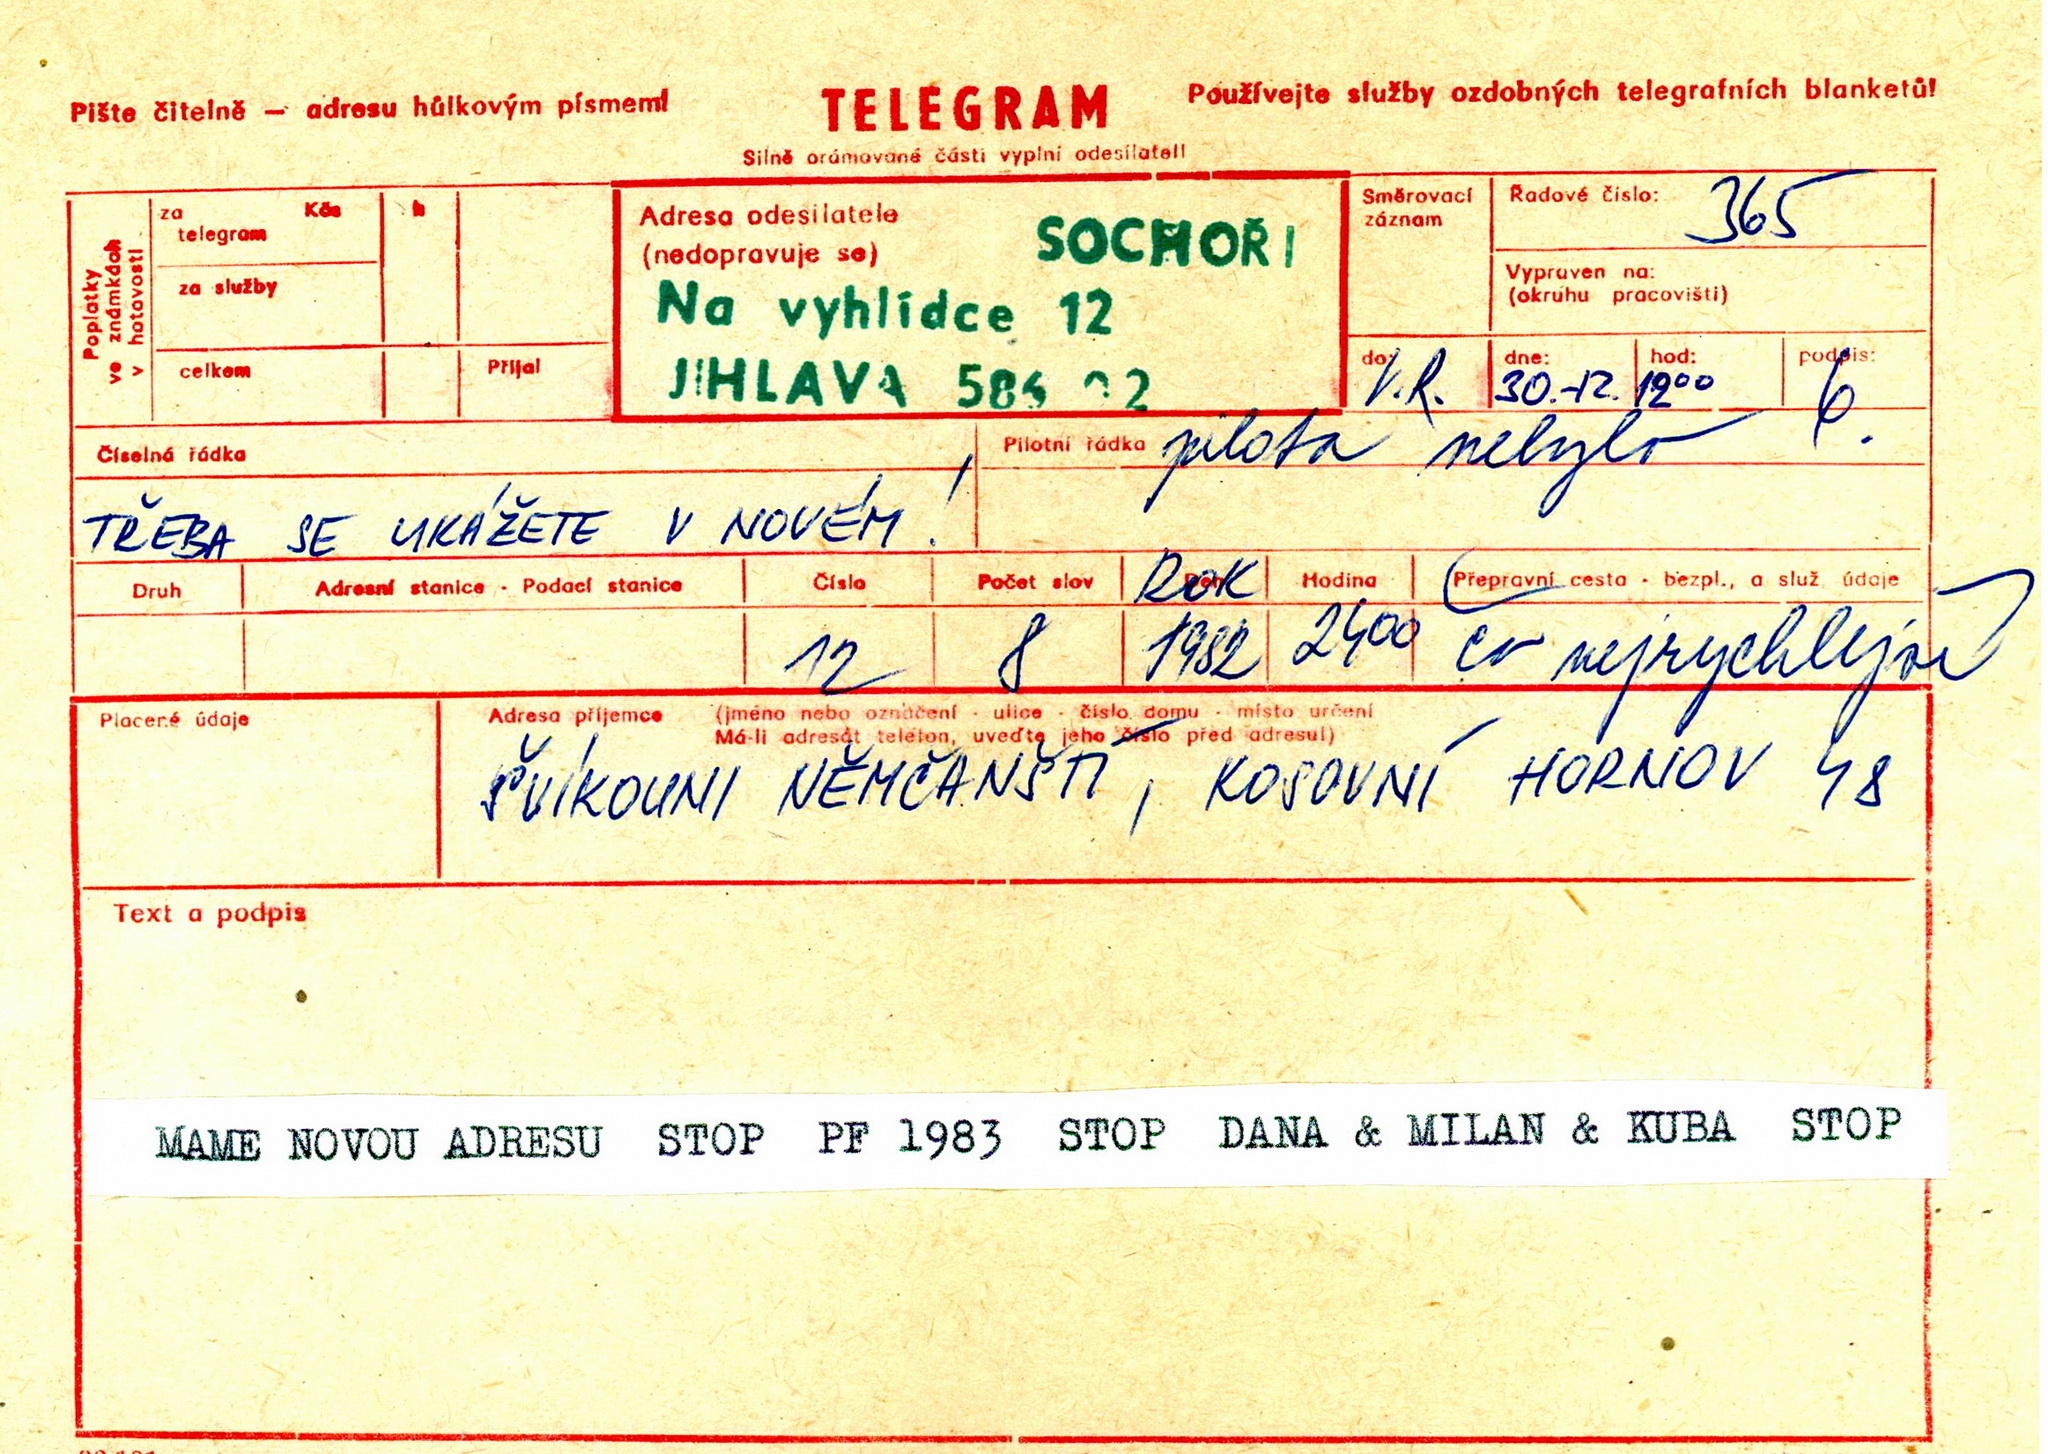 Pište čitelně — adresu hůlkovým písmem!
TELEGRAM
Používejte služby ozdobných telegrafních blanketů!
Silně orámované části vyplní odesílatel!
Poplatky
ve známkách
v hotovosti
za
telegram
Kčs
h
za služby
celkem
Přijal
Adresa odesílatele
(nedopravuje se)
SOCHOŘI
Na vyhlídce 12
JIHLAVA
Směrovací
záznam
Řadové číslo:
365
Vypraven na:
(okruhu pracovišti)
do:
V.R.
dne:
30.-12.
hod:
12⁰⁰
podpis:
Číselná řádka
Pilotní řádka
pilota nebylo
TŘEBA SE UKÁŽETE V NOVÉM!
Druh
Adresní stanice - Podací stanice
Číslo
Počet slov
ROK
Hodina
Přepravní cesta - bezpl., a služ údaje
12
8
1982
2400
co nejrychleji
Placené údaje
Adresa příjemce
(jméno nebo označení - ulice - číslo domu - místo určení
Má-li adresát telefon, uveďte jeho číslo před adresu!)
ŠVÍKOUNI NĚMČANŠTÍ, KOSOVNÍ HORNOV 48
Text a podpis
MAME NOVOU ADRESU STOP PF 1983 STOP DANA & MILAN & KUBA STOP